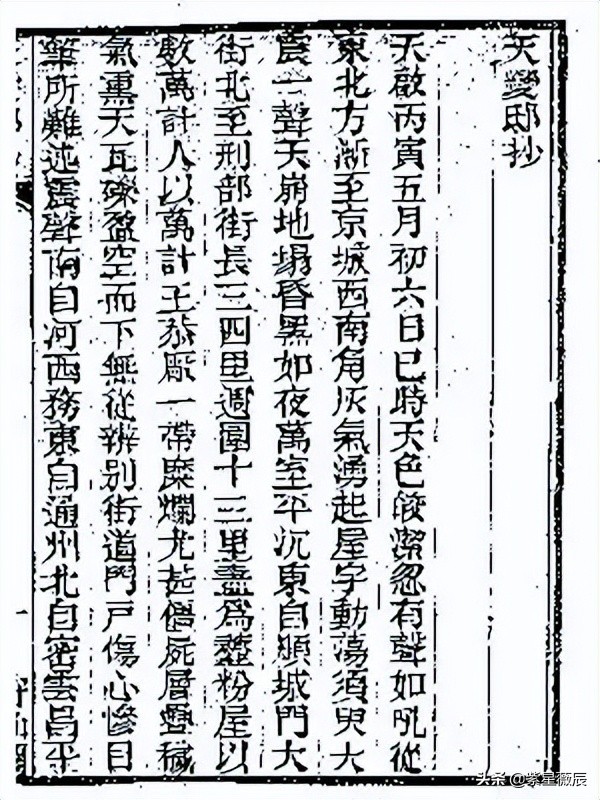 天變邸抄
天啟丙寅五月初六日巳時天色皎潔忽有聲如吼從
東北方漸至京城西南角灰氣湧起屋宇動蕩須臾大
震一聲天崩地塌昏黑如夜萬室平沉東自順城門大
街北至刑部街長三四里週圍十三里盡爲虀粉屋以
數萬計人以萬計王恭廠一帶糜爛尤甚僵屍層疊穢
氣熏天瓦礫盈空而下無從辨別街道門戶傷心慘目
筆所難述震聲南自河西務東自通州北自密雲昌平
一
头条 @紫星薇辰